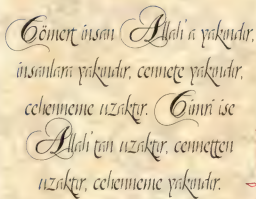 Cömert insan Allah'a yakındır,
insanlara yakındır, cennete yakındır,
cehenneme uzaktır. Cimri ise
Allah'tan uzaktır, cennetten
uzaktır, cehenneme yakındır.